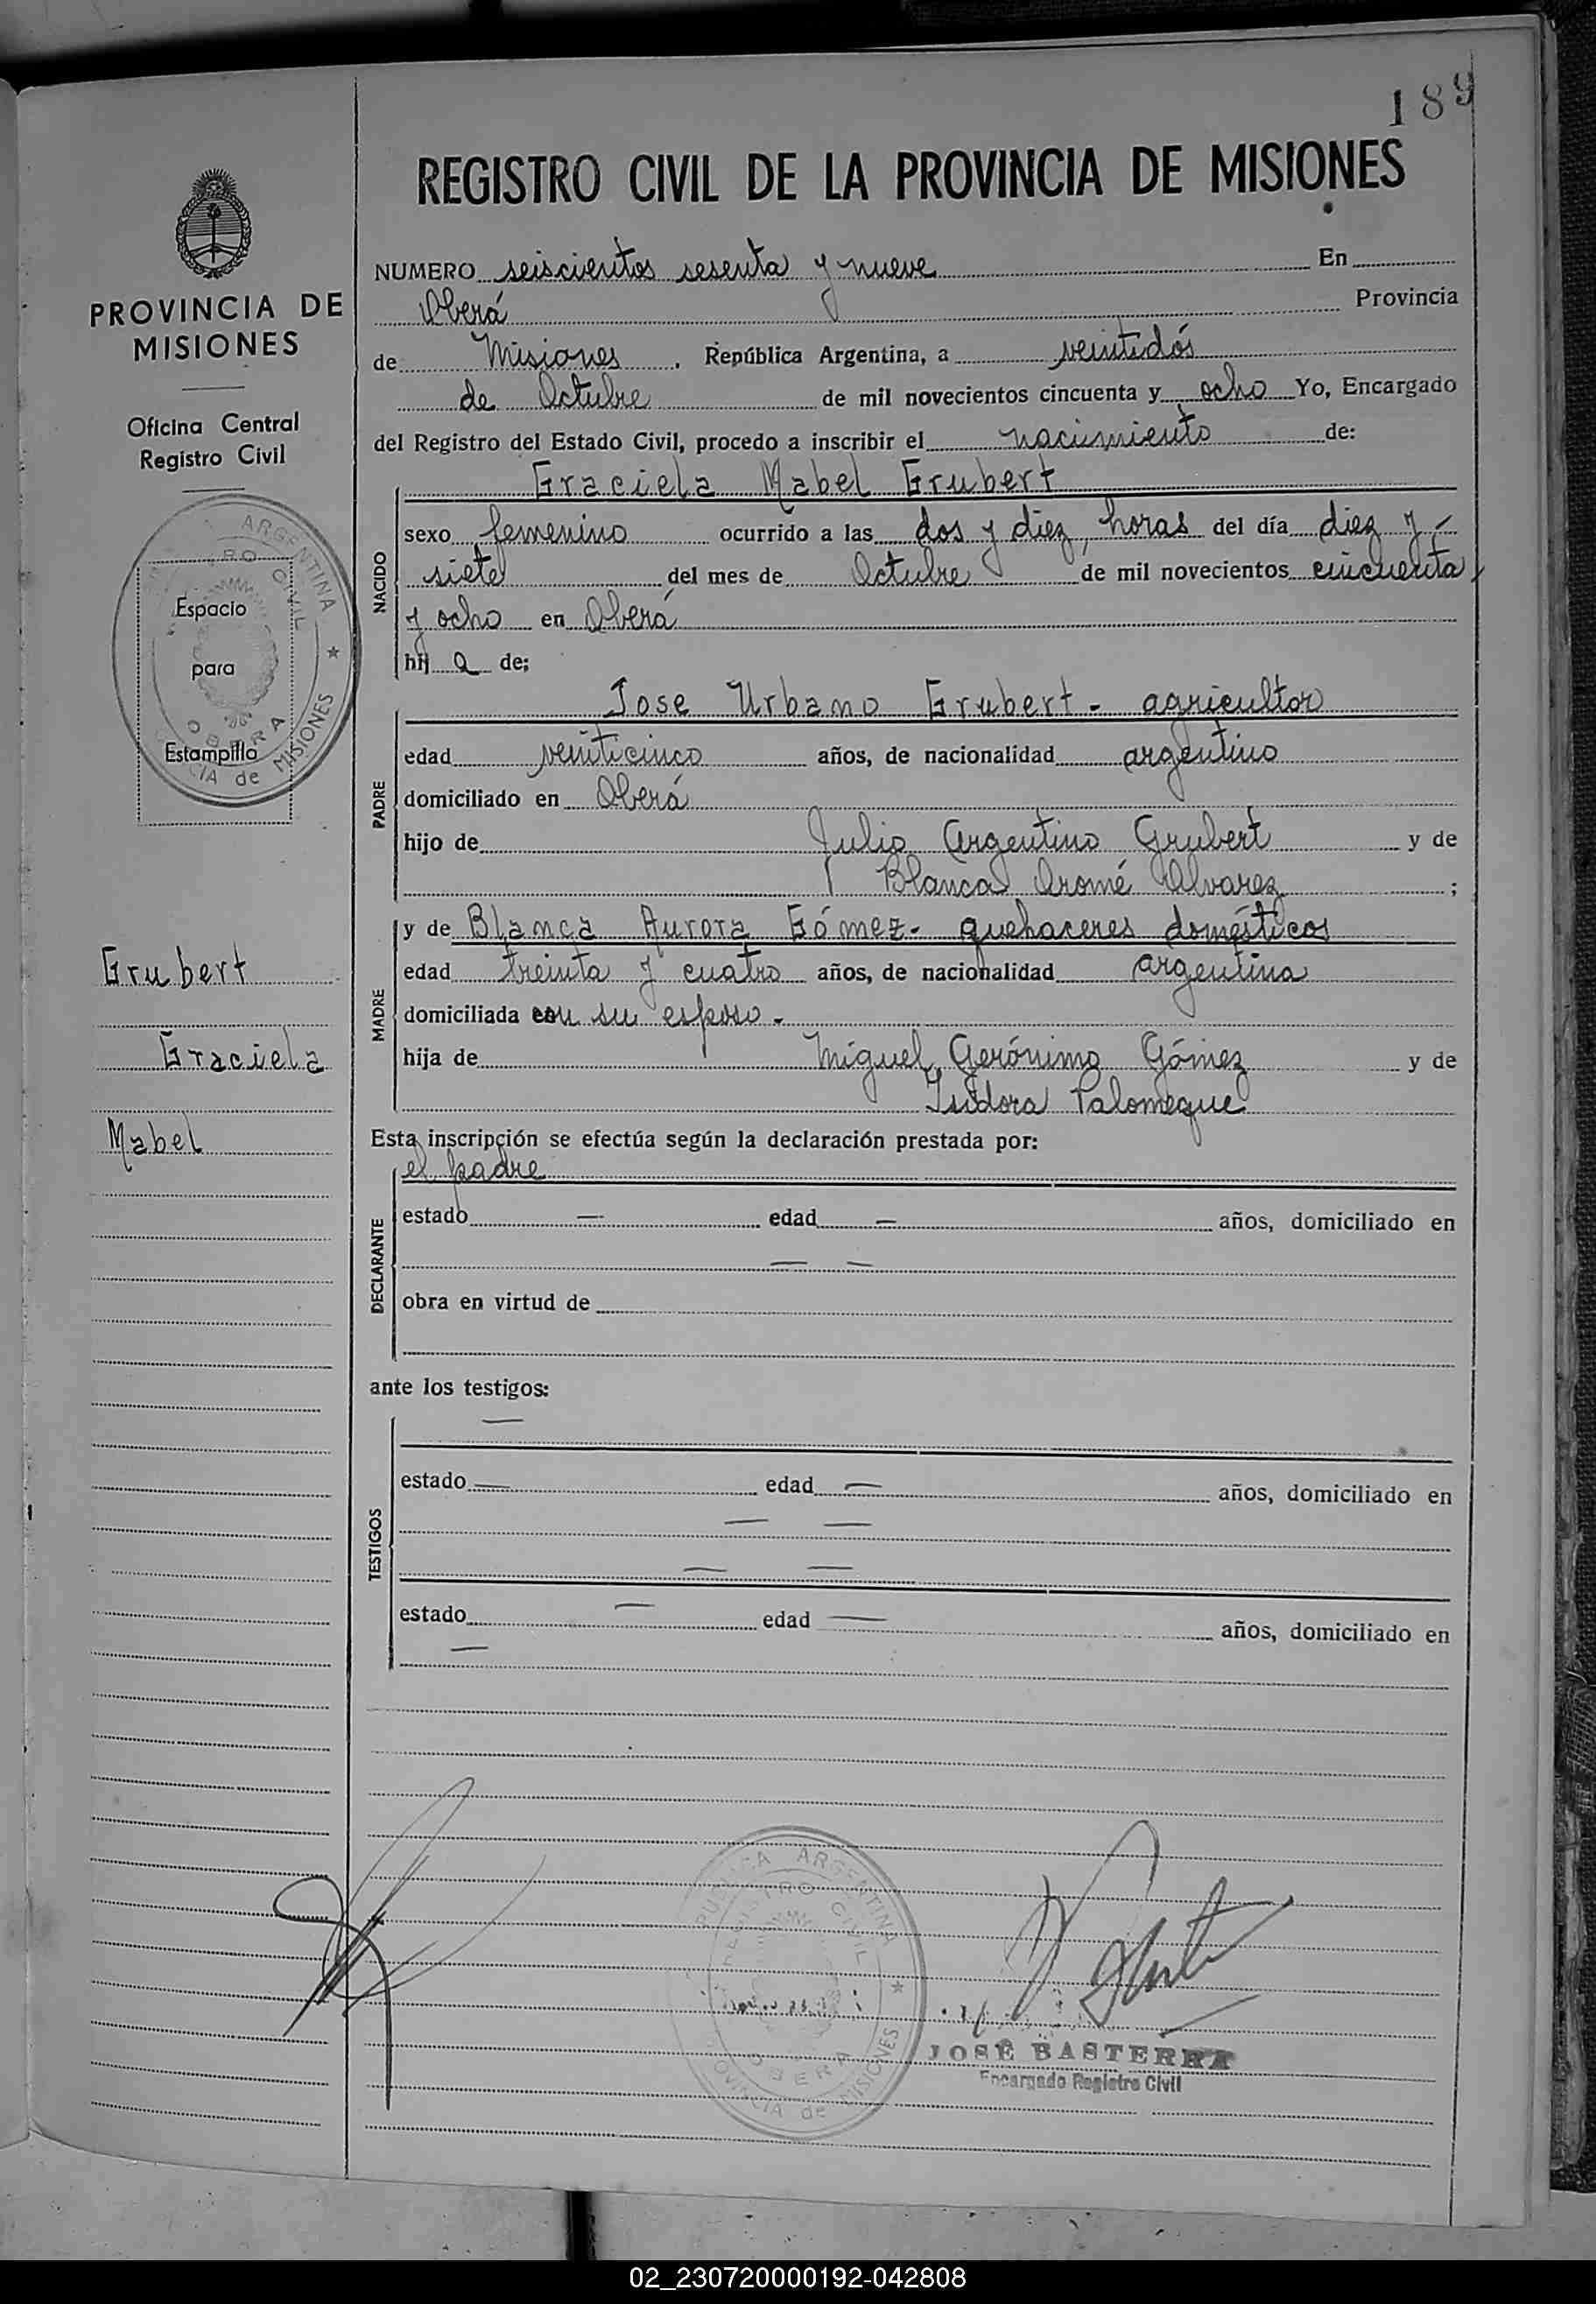 189
REGISTRO CIVIL DE LA PROVINCIA DE MISIONES
PROVINCIA DE
MISIONES
Oficina Central
Registro Civil
ARGENTINA
CIVIL
Espacio
para
Estampilla
OBERA
CIA de MISIONES
Grubert
Graciela
Mabel
NUMERO seiscientos sesenta y nueve En
Oberá Provincia
de Misiones. República Argentina, a veintidós
de Octubre de mil novecientos cincuenta y ocho Yo, Encargado
del Registro del Estado Civil, procedo a inscribir el nacimiento de:
Graciela Mabel Grubert
NACIDO
sexo femenino ocurrido a las dos y diez horas del día diez y -
siete del mes de Octubre de mil novecientos cincuenta
y ocho en Oberá
hij a de;
Jose Urbano Grubert - agricultor
PADRE
edad veinticinco años, de nacionalidad argentino
domiciliado en Oberá
hijo de Julio Argentino Grubert y de
Blanca Oromé Alvarez ;
y de Blanca Aurora Gómez - quehaceres domésticos
MADRE
edad treinta y cuatro años, de nacionalidad argentina
domiciliada con su esposo -
hija de Miguel Gerónimo Gómez y de
Isidora Palomeque
Esta inscripción se efectúa según la declaración prestada por:
el padre
DECLARANTE
estado — edad — años, domiciliado en
— —
obra en virtud de
ante los testigos:
—
TESTIGOS
estado — edad — años, domiciliado en
— —
— —
estado — edad — años, domiciliado en
—
ARGENTINA
REGISTRO CIVIL
OBERA
PROVINCIA de MISIONES
JOSÉ BASTERRA
Encargado Registro Civil
02_230720000192-042808